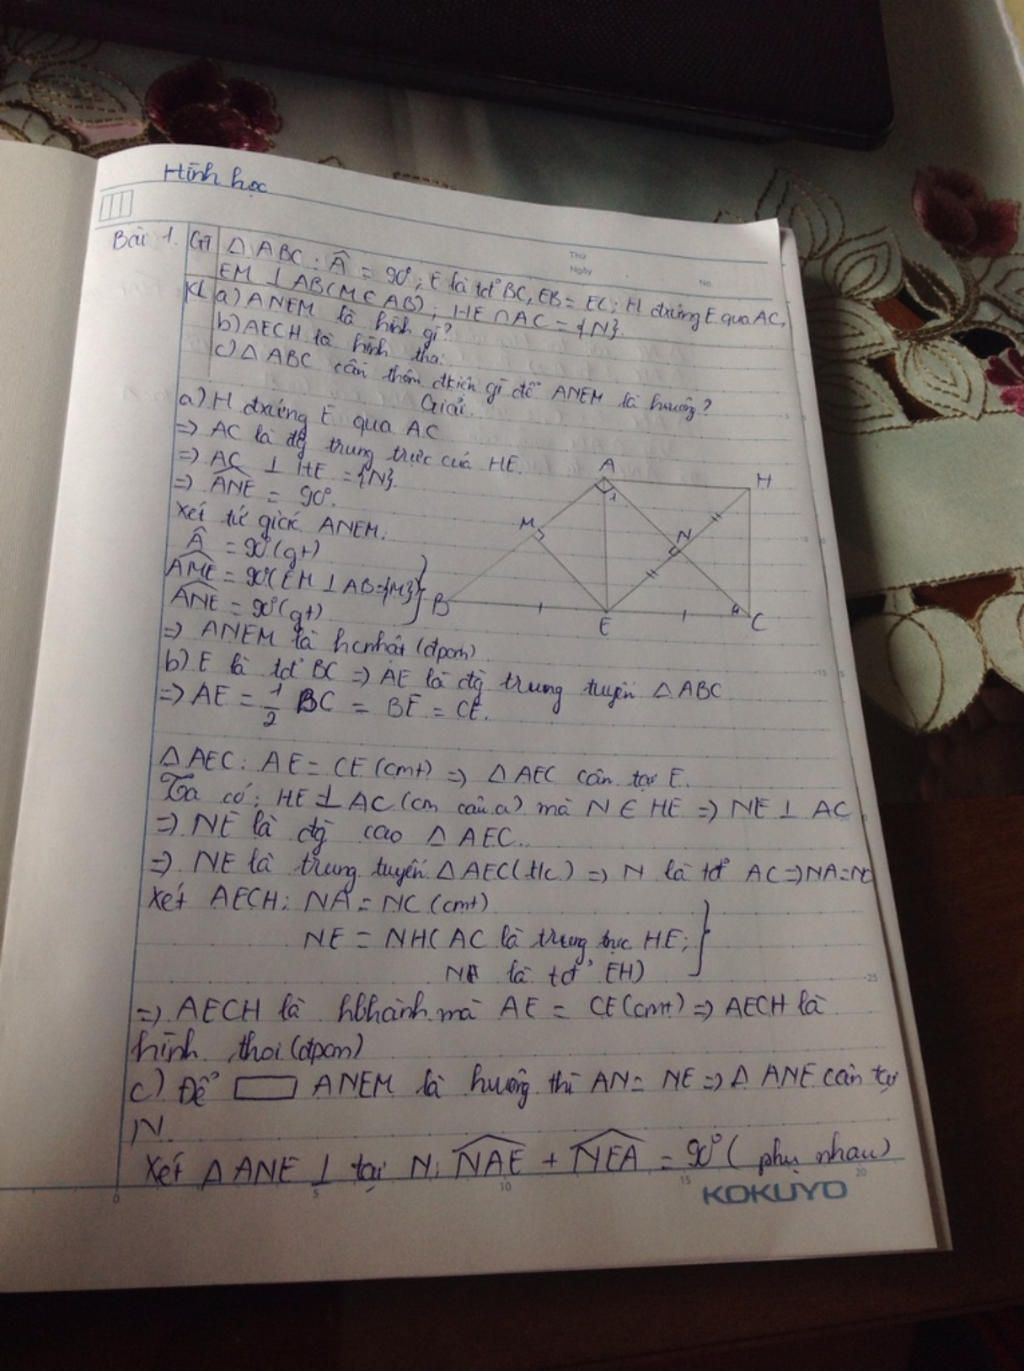 Hình học
Thứ
Ngày
No.
Bài 1. GT Δ ABC: Â = 90°; E là tđ' BC, EB = EC; H đxứng E qua AC,
EM ⊥ AB (M ∈ AB); HE ∩ AC = {N}.
KL a) ANEM là hình gì?
b) AECH là hình thoi
c) Δ ABC cần thêm đkiện gì để ANEM là hvuông?
Giải.
a) H đxứng E qua AC
=> AC là đg trung trực của HE.
=> AC ⊥ HE = {N}.
=> ANE = 90°.
Xét tứ giác ANEM:
Â = 90° (gt)
AME = 90° (EM ⊥ AB = {M})
ANE = 90° (gt)
=> ANEM là hcnhật (đpcm)
A
1
H
M
N
B
E
4
C
b) E là tđ' BC => AE là đg trung tuyến Δ ABC
=> AE = 1/2 BC = BE = CE.
Δ AEC: AE = CE (cmt) => Δ AEC cân tại E.
Ta có: HE ⊥ AC (cm câu a) mà N ∈ HE => NE ⊥ AC
=> NE là đg cao Δ AEC.
=> NE là trung tuyến Δ AEC (t/c) => N là tđ' AC => NA = NC
Xét AECH: NA = NC (cmt)
NE = NH (AC là trung trực HE;
N là tđ' EH)
=> AECH là hbhành mà AE = CE (cmt) => AECH là
hình thoi (đpcm)
c) Để ▭ ANEM là hvuông thì AN = NE => Δ ANE cân tại
N.
Xét Δ ANE ⊥ tại N: NAE + NEA = 90° (phụ nhau)
0 5 10 15 20
KOKUYO